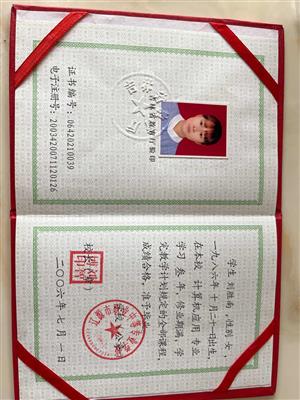 学生 刘胜南,性别 女,
一九八六年 十月二十一日出生,
在本校 计算机应用 专业
学习 叁 年,修业期满,学
完教学计划规定的全部课程,
成绩合格,准予毕业。
二〇〇六年 七月 一日
证书编号:06420210039
电子注册号:2003420071120126